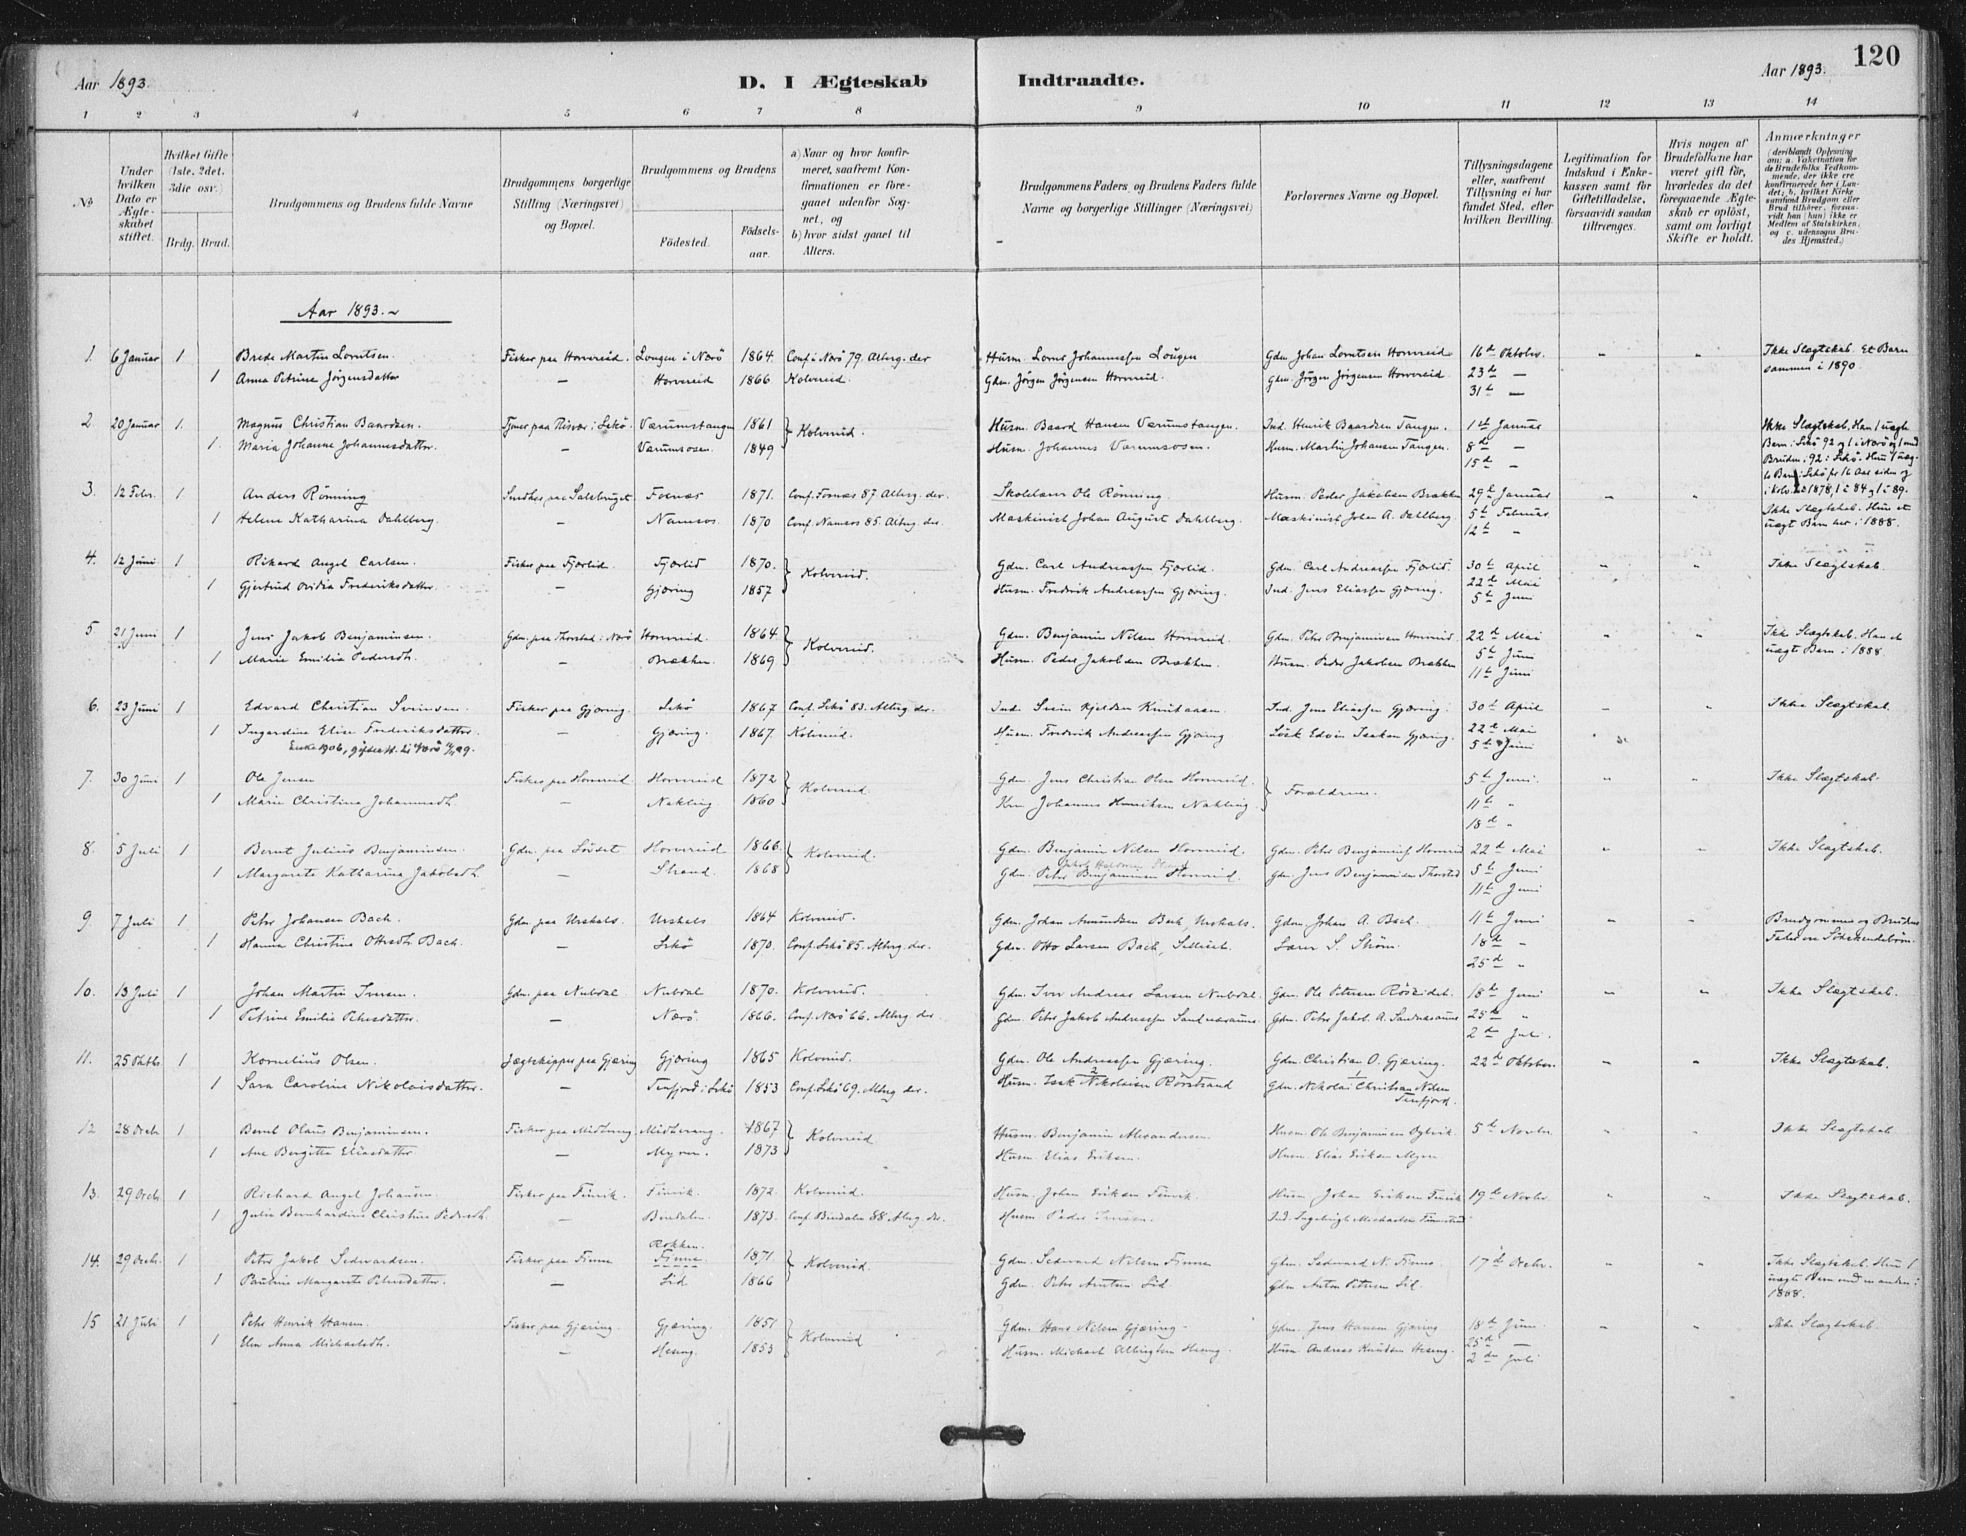 Aar 1893.
D. I Ægteskab Indtraadte.
Aar 1893.
120
1 2 3 4 5 6 7 8 9 10 11 12 13 14
№
Under hvilken Dato er Ægteskabet stiftet.
Hvilket Gifte (1ste, 2det, 3die osv.)
Brdg. Brud.
Brudgommens og Brudens fulde Navne
Brudgommens borgerlige Stilling (Næringsvei) og Bopæl.
Brudgommens og Brudens
Födested.
Födselsaar.
a) Naar og hvor konfirmeret, saafremt Konfirmationen er foregaaet udenfor Sognet, og
b) hvor sidst gaaet til Alters.
Brudgommens Faders og Brudens Faders fulde Navne og borgerlige Stillinger (Næringsvei)
Forlovernes Navne og Bopæl.
Tillysningsdagene eller, saafremt Tillysning ei har fundet Sted, efter hvilken Bevilling.
Legitimation for Indskud i Enkekassen samt for Giftetilladelse, forsaavidt saadan tiltrænges.
Hvis nogen af Brudefolkene har været gift før, hvorledes da det foregaaende Ægteskab er oplöst, samt om lovligt Skifte er holdt.
Anmærkninger (deriblandt Oplysning om: a. Vakcination for de Brudefolks Vedkommende, der ikke ere konfirmerede her i Landet; b. hvilket Kirkesamfund Brudgom eller Brud tilhörer, forsaavidt han (hun) ikke er Medlem af Statskirken, og c. udensogns Brudes Hjemsted.)
Aar 1893.
1. 6 Januar 1 Brede Martin Lorntsen. Fisker paa Horvereid. Lougen i Nærö 1864. Conf. i Nærö 79. Altrg. der Husm. Lornt Johannessen Lougen Gdm. Johan Lorntsen Horvereid 16d Oktobr. " " Ikke Slægtskab. Et Barn
1 Anna Petrine Jörgensdatter — Horvereid 1866 Kolvereid. Gdm. Jörgen Jörgensen Horvereid. Gdm. Jörgen Jörgensen Horvereid 23d — sammen i 1890.
31te —
2. 20 Januar 1. Magnus Christian Baardsen. Tjener paa Risvær i Lekö. Værumstangen 1861 Kolvereid. Husm. Baard Hansen Værumstangen. Ind. Henrik Baardsen Tangen. 1ste Januar Ikke Slægtskab. Han 1 uægte
1. Maria Johanne Johannesdatter. — Værumsosen. 1849 Husm. Johannes Værumsosen. Husm. Martin Johansen Tangen. 8d — Barn i Lekö 92 og 1 i Nærö og 1 med
15d — Bruden i 92 i Lekö. Hun 1 uæg-
te Barn i Lekö for 16 Aar siden og
3. 12 Febr. 1 Anders Rönning Snedker paa Salsbruget. Fosnæs 1871. Conf. Fosnæs 87 Altrg. der. Skolelærer Ole Rönning Husm. Peder Jakobsen Brækken 29te Januar " " i Kolv. 1878, 1 i 84 og 1 i 89.
1 Helene Katharina Dahlberg. — Namsos 1870 Conf. Namsos 85. Altrg. der. Maskinist Johan August Dahlberg. Maskinist Johan A. Dahlberg 5te Februar Ikke Slægtskab. Hun et
12te " uægt Barn her i 1888.
4. 12 Juni 1 Rikard Angel Carlsen. Fisker paa Fjærlid. Fjærlid 1870. Kolvereid. Gdm. Carl Andreassen Fjærlid. Gdm. Carl Andreassen Fjærlid 30te April " " Ikke Slægtskab.
1 Gjertrud Ovidia Frederiksdatter. — Gjæring 1857 Husm. Fredrik Andreassen Gjæring. Ind. Jens Eliassen Gjæring. 22d Mai
5te Juni
5 21 Juni 1 Jens Jakob Benjaminsen. Gdm. paa Thorstad i Nærö Horvereid. 1864 Kolvereid. Gdm. Benjamin Nilsen Horvereid. Gdm. Peter Benjaminsen Horvereid 22d Mai " " Ikke Slægtskab. Han et
1 Marie Emilie Pedersdt. — Brækken. 1869 Husm. Peder Jakobsen Brækken. Husm. Peder Jakobsen Brækken 5te Juni uægte Barn i 1888
11te Juni
6. 23 Juni 1 Edvard Christian Svensen. Fisker paa Gjæring. Lekö 1867 Conf. Lekö 83. Altrg. der. Ind. Svein Kjeldsen Ind. Jens Eliassen Gjæring. 30te April " " Ikke Slægtskab.
1 Ingardine Elise Frederiksdatter. — Gjæring. 1867. Kolvereid. Husm. Fredrik Andreassen Gjæring Edvin Isaksen Gjæring. 22d Mai
Enke 1906, gift
5te Juni
7. 30 Juni 1 Ole Jensen Fisker paa Horvereid Horvereid 1872 Kolvereid. Gdm. Jens Christian Olsen Horvereid. Forældrene. 5te Juni. " " Ikke Slægtskab.
1 Marie Christina Johannesdt. — Nakling 1860 Johannes Henriksen Nakling 11te "
18d "
8. 5 Juli 1 Bernt Julius Benjaminsen. Gdm. paa Löiset Horvereid 1866. Kolvereid. Gdm. Benjamin Nilsen Horvereid. Gdm. Peter Benjaminsen Horvereid 22d Mai " " Ikke Slægtskab.
1 Margarete Katharina Jakobsdt. — Strand. 1868 Gdm. Peter Benjaminsen Horvereid. Gdm. Jens Benjaminsen Thorstad 5te Juni
11te Juni
9. 7 Juli 1 Peter Johansen Bach. Gdm. paa Urskals. Urskals 1864 Kolvereid. Gdm. Johan Amundsen Bach, Urskals. Gdm. Johan A. Bach. 11te Juni " " Brudgommens og Brudens
1 Hanna Christine Ottesdt. Bach. — Lekö 1870. Conf. Lekö 85. Altrg. der. Gdm. Otto Larsen Bach, Lærer S. Ström. 18d " Fader ere Södskendebörn.
25d "
10. 13 Juli 1 Johan Martin Iversen. Gdm. paa Nubdal. Nubdal 1870. Kolvereid. Gdm. Iver Andreas Larsen Nubdal. Gdm. Ole Petersen 18d Juni " " Ikke Slægtskab.
1 Petrine Emilie Petersdatter. — Nærö. 1866. Conf. Nærö 66. Altrg der. Gdm. Peter Jakob Andreassen Sandnæsaune. Gdm. Peter Jakob A. Sandnæsaune 25d "
2den Juli.
11. 25 Oktb. 1 Kornelius Olsen. Jægtskipper paa Gjæring Gjæring 1865 Kolvereid. Gdm. Ole Andreassen Gjæring. Gdm. Christian O. Gjæring. 22d Oktober. " " Ikke Slægtskab.
1 Sara Caroline Nikolaisdatter. — Terfjord i Lekö 1853 Conf. Lekö 69. Altrg der. Husm. Isak Nikolaisen Rörstrand Gdm. Nikolai Christian Nilsen
Terfjord.
12 28 Decbr. 1 Bernt Olaus Benjaminsen. Fisker paa Midterang. Midterang. 1867 Kolvereid Husm. Benjamin Alexandersen. Husm. Ole Benjaminsen 5te Novbr. " " Ikke Slægtskab
1 Ane Bergitte Eliasdatter — Myren. 1873 Husm. Elias Eriksen. Husm. Elias Eriksen Myren
13. 29 Decb. 1 Richard Angel Johansen. Fisker paa Finvik. Finvik. 1872. Kolvereid. Husm. Johan Eriksen Finvik. Husm. Johan Eriksen Finvik 19te Novbr. " " Ikke Slægtskab.
1 Julie Bernhardine Christine Pedersdt. — Bindalen. 1873. Conf. Bindalen 88 Altrg. der. Husm. Peder Ind. Ingebrigt Michaelsen
Rokken.
14. 29 Decbr. 1 Peter Jakob Sedvardsen. Fisker paa Finne Finne 1871. Kolvereid. Gdm. Sedvard Nilsen Finne Gdm. Sedvard N. Finne. 17de Decbr. " " Ikke Slægtskab. Hun 1
1 Pauline Margarete Petersdatter. — Lid 1866 Gdm. Peter Lid. Gdm. Anton Petersen Lid. uægte Barn med en anden i
1888.
15 21 Juli 1 Peter Henrik Hansen. Fisker paa Gjæring. Gjæring. 1851 Kolvereid Gdm. Hans Nilsen Gjæring. Gdm. Jens Hansen Gjæring 18d Juni " " Ikke Slægtskab.
1 Elen Anna Michaelsdt. — Heseng. 1853 Husm. Michael Heseng. Husm. Andreas Knudsen Heseng. 25d —
2den Juli